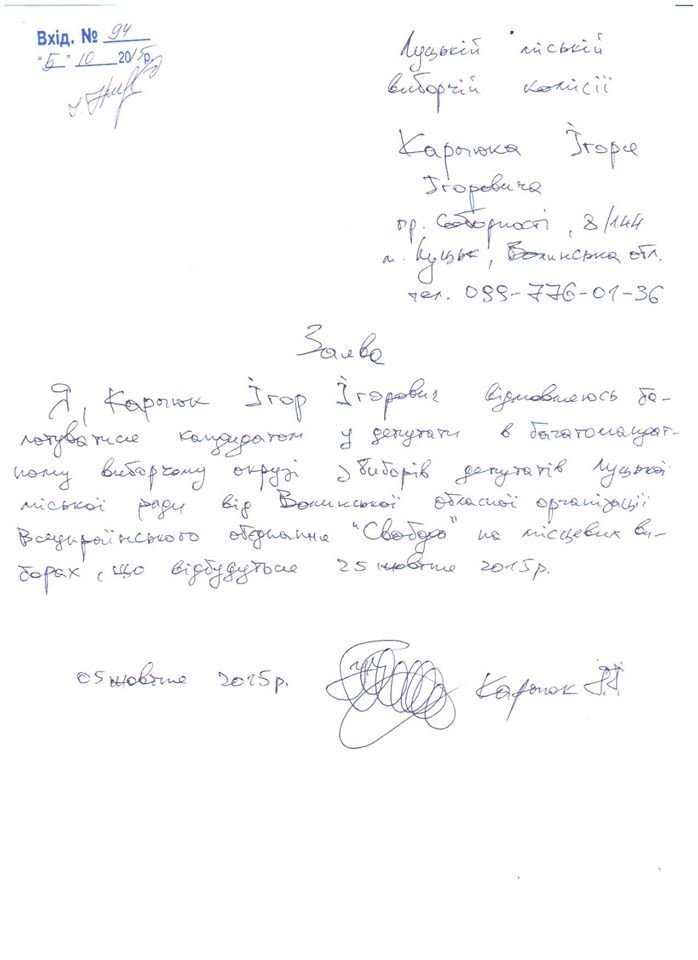 Вхід. № 94
"5" 10 2015р.
Луцькій міській
виборчій комісії
Карпюка Ігоря
Ігоровича
пр. Соборності, 8/144
м. Луцьк, Волинська обл.
тел. 099-776-01-36
Заява
Я, Карпюк Ігор Ігорович відмовляюсь ба-
лотуватися кандидатом у депутати в багатомандат-
ному виборчому окрузі з виборів депутатів Луцької
міської ради від Волинської обласної організації
Всеукраїнського обєднання "Свобода" на місцевих ви-
борах, що відбудуться 25 жовтня 2015р.
05 жовтня 2015р. Карпюк І.І.